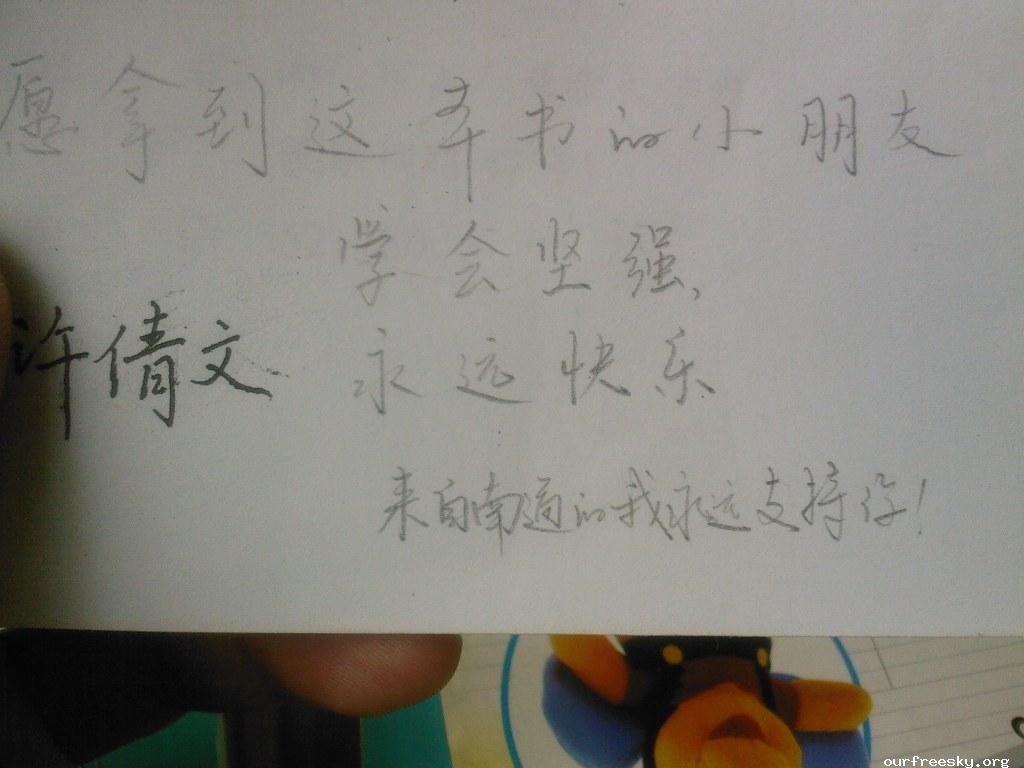 愿拿到这本书的小朋友
学会坚强,
许倩文
永远快乐
来自南通的我永远支持你!
ourfreesky.org